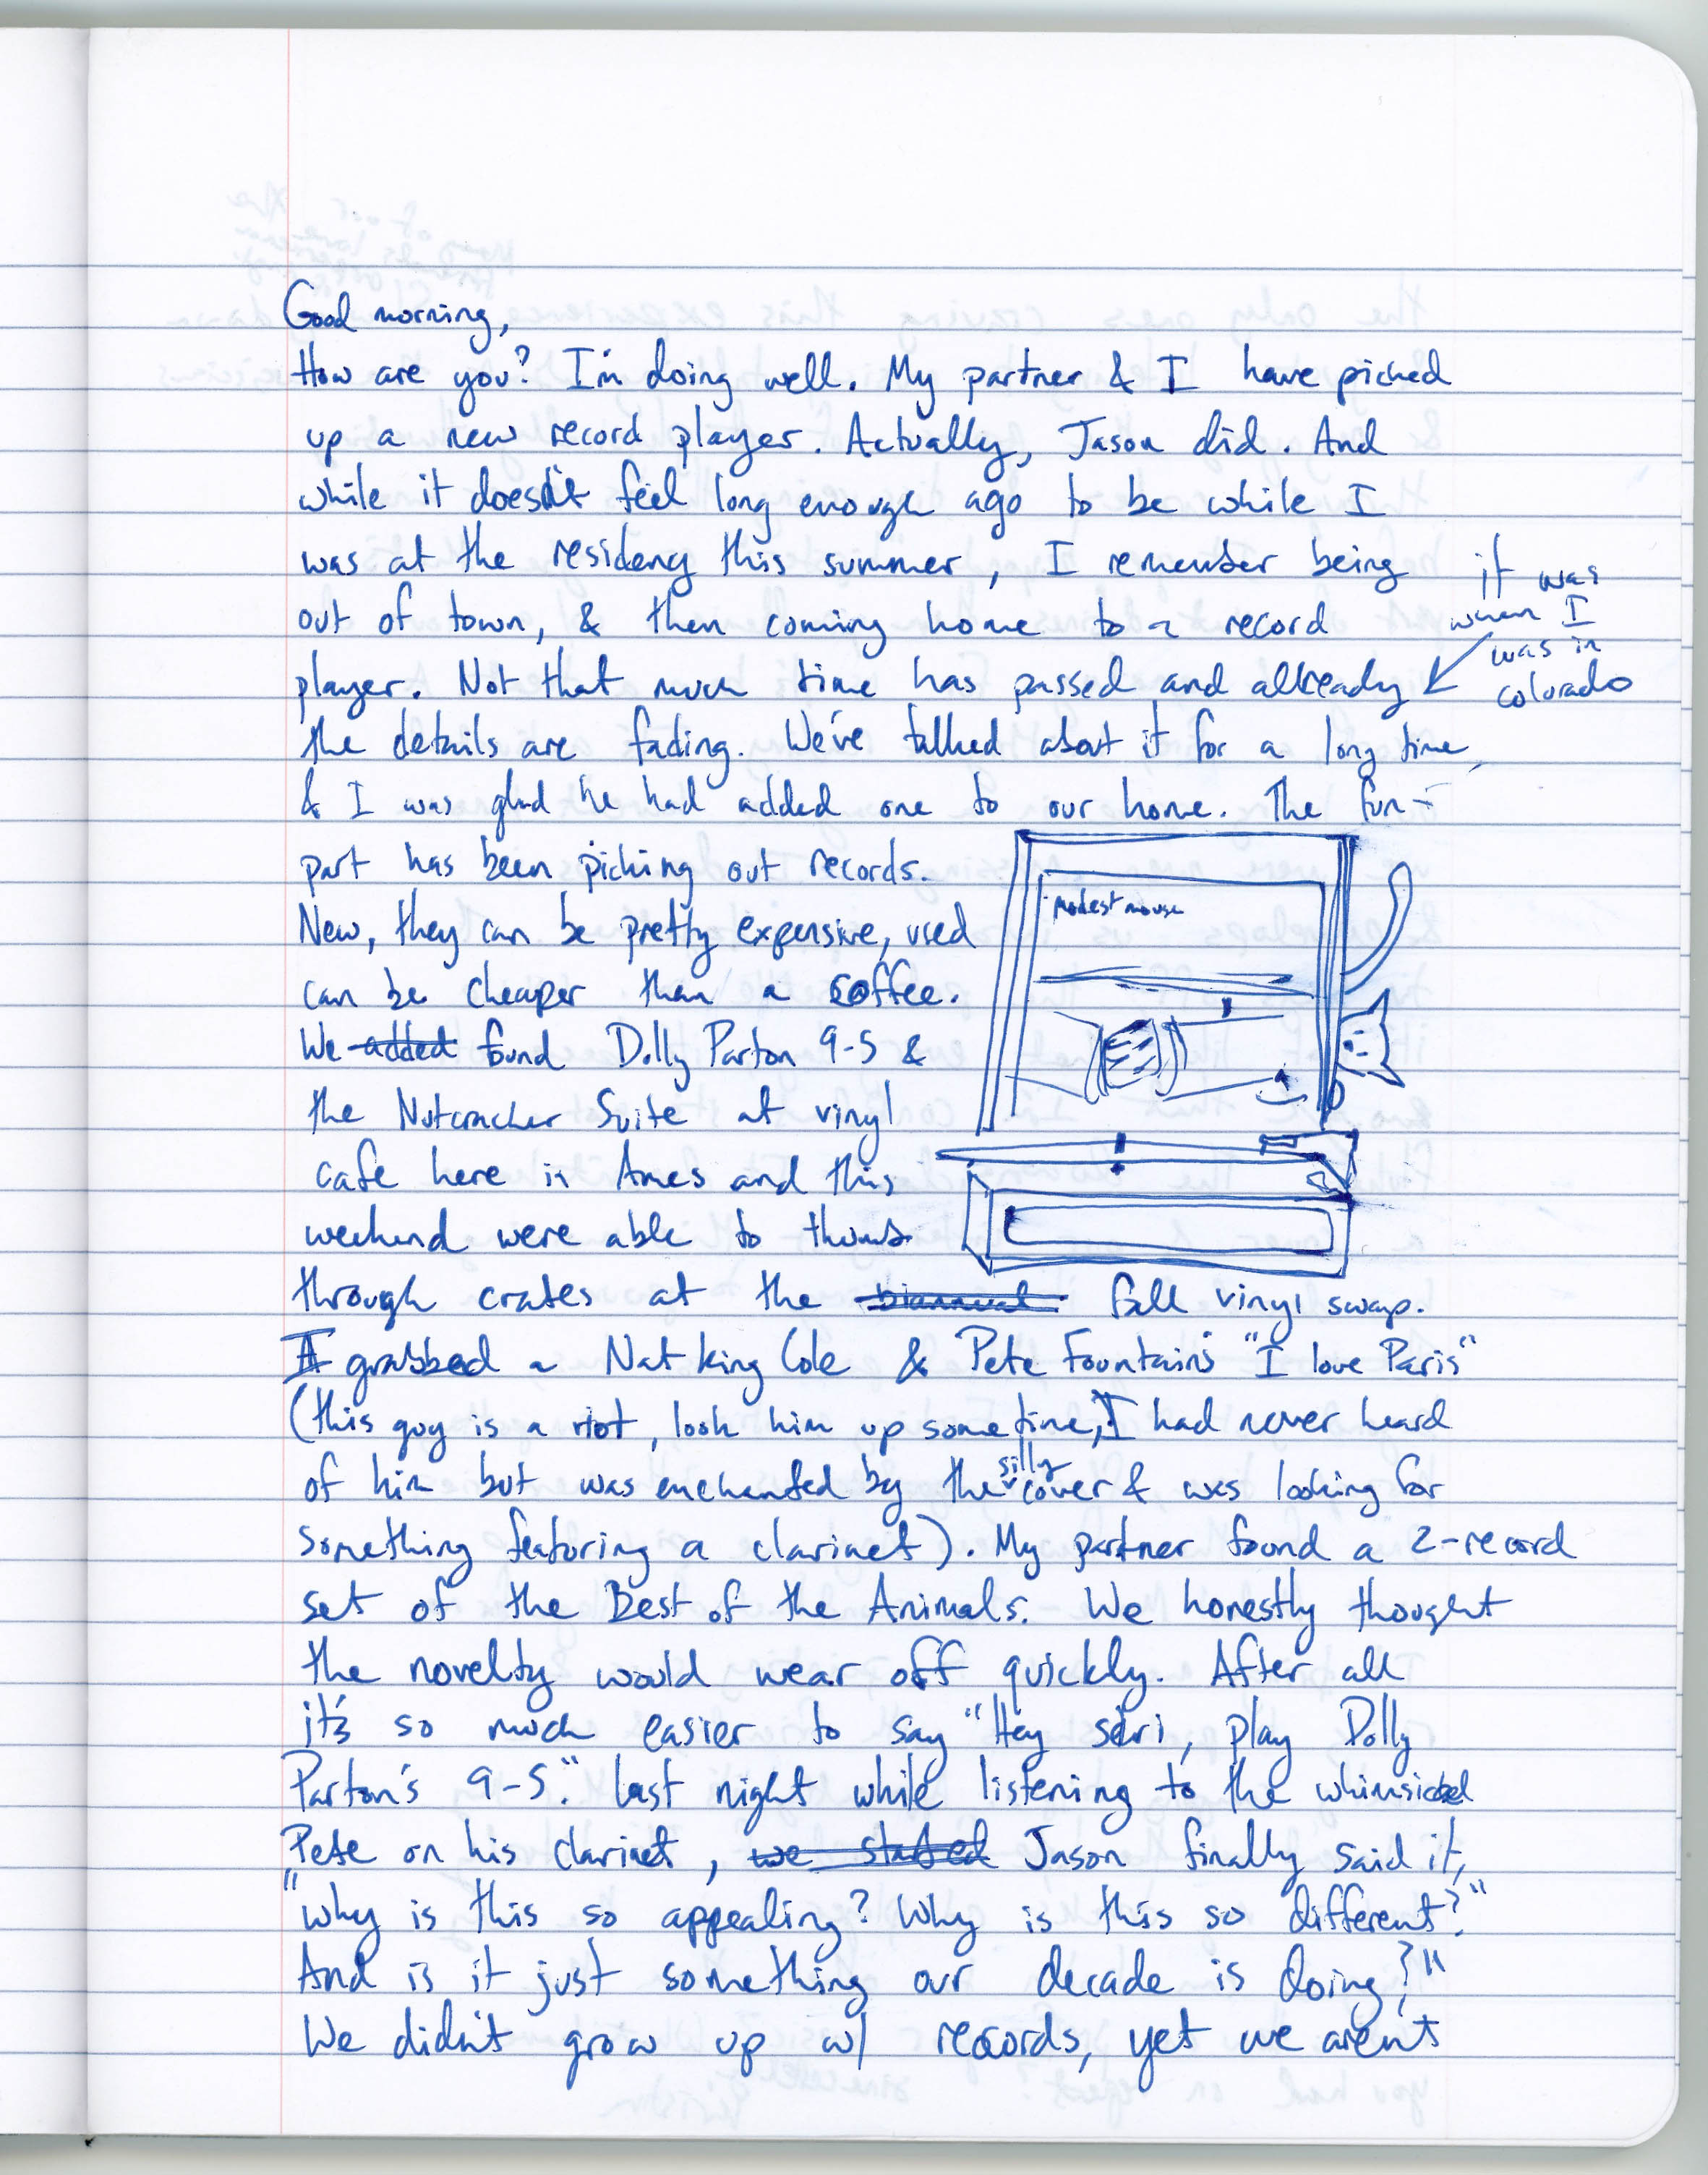 Good morning,
How are you? I'm doing well. My partner & I have picked
up a new record player. Actually, Jason did. And
while it doesn't feel long enough ago to be while I
was at the residency this summer, I remember being
out of town, & then coming home to a record
player. Not that much time has passed and already
it was
when I
was in
colorado
the details are fading. We've talked about it for a long time,
& I was glad he had added one to our home. The fun-
part has been picking out records.
New, they can be pretty expensive, used
can be cheaper than a coffee.
We added found Dolly Parton 9-5 &
the Nutcracker Suite at vinyl
cafe here in Ames and this
weekend were able to thumb
modest mouse
through crates at the biannual fall vinyl swap.
I grabbed a Nat king Cole & Pete Fountain's "I love Paris"
(this guy is a riot, look him up some time, I had never heard
of him but was enchanted by the silly cover & was looking for
something featuring a clarinet). My partner found a 2-record
set of the Best of the Animals. We honestly thought
the novelty would wear off quickly. After all
it's so much easier to say "Hey siri, play Dolly
Parton's 9-5." last night while listening to the whimsical
Pete on his clarinet, we started Jason finally said it,
"Why is this so appealing? Why is this so different?"
And is it just something our decade is doing?"
We didn't grow up w/ records, yet we aren't